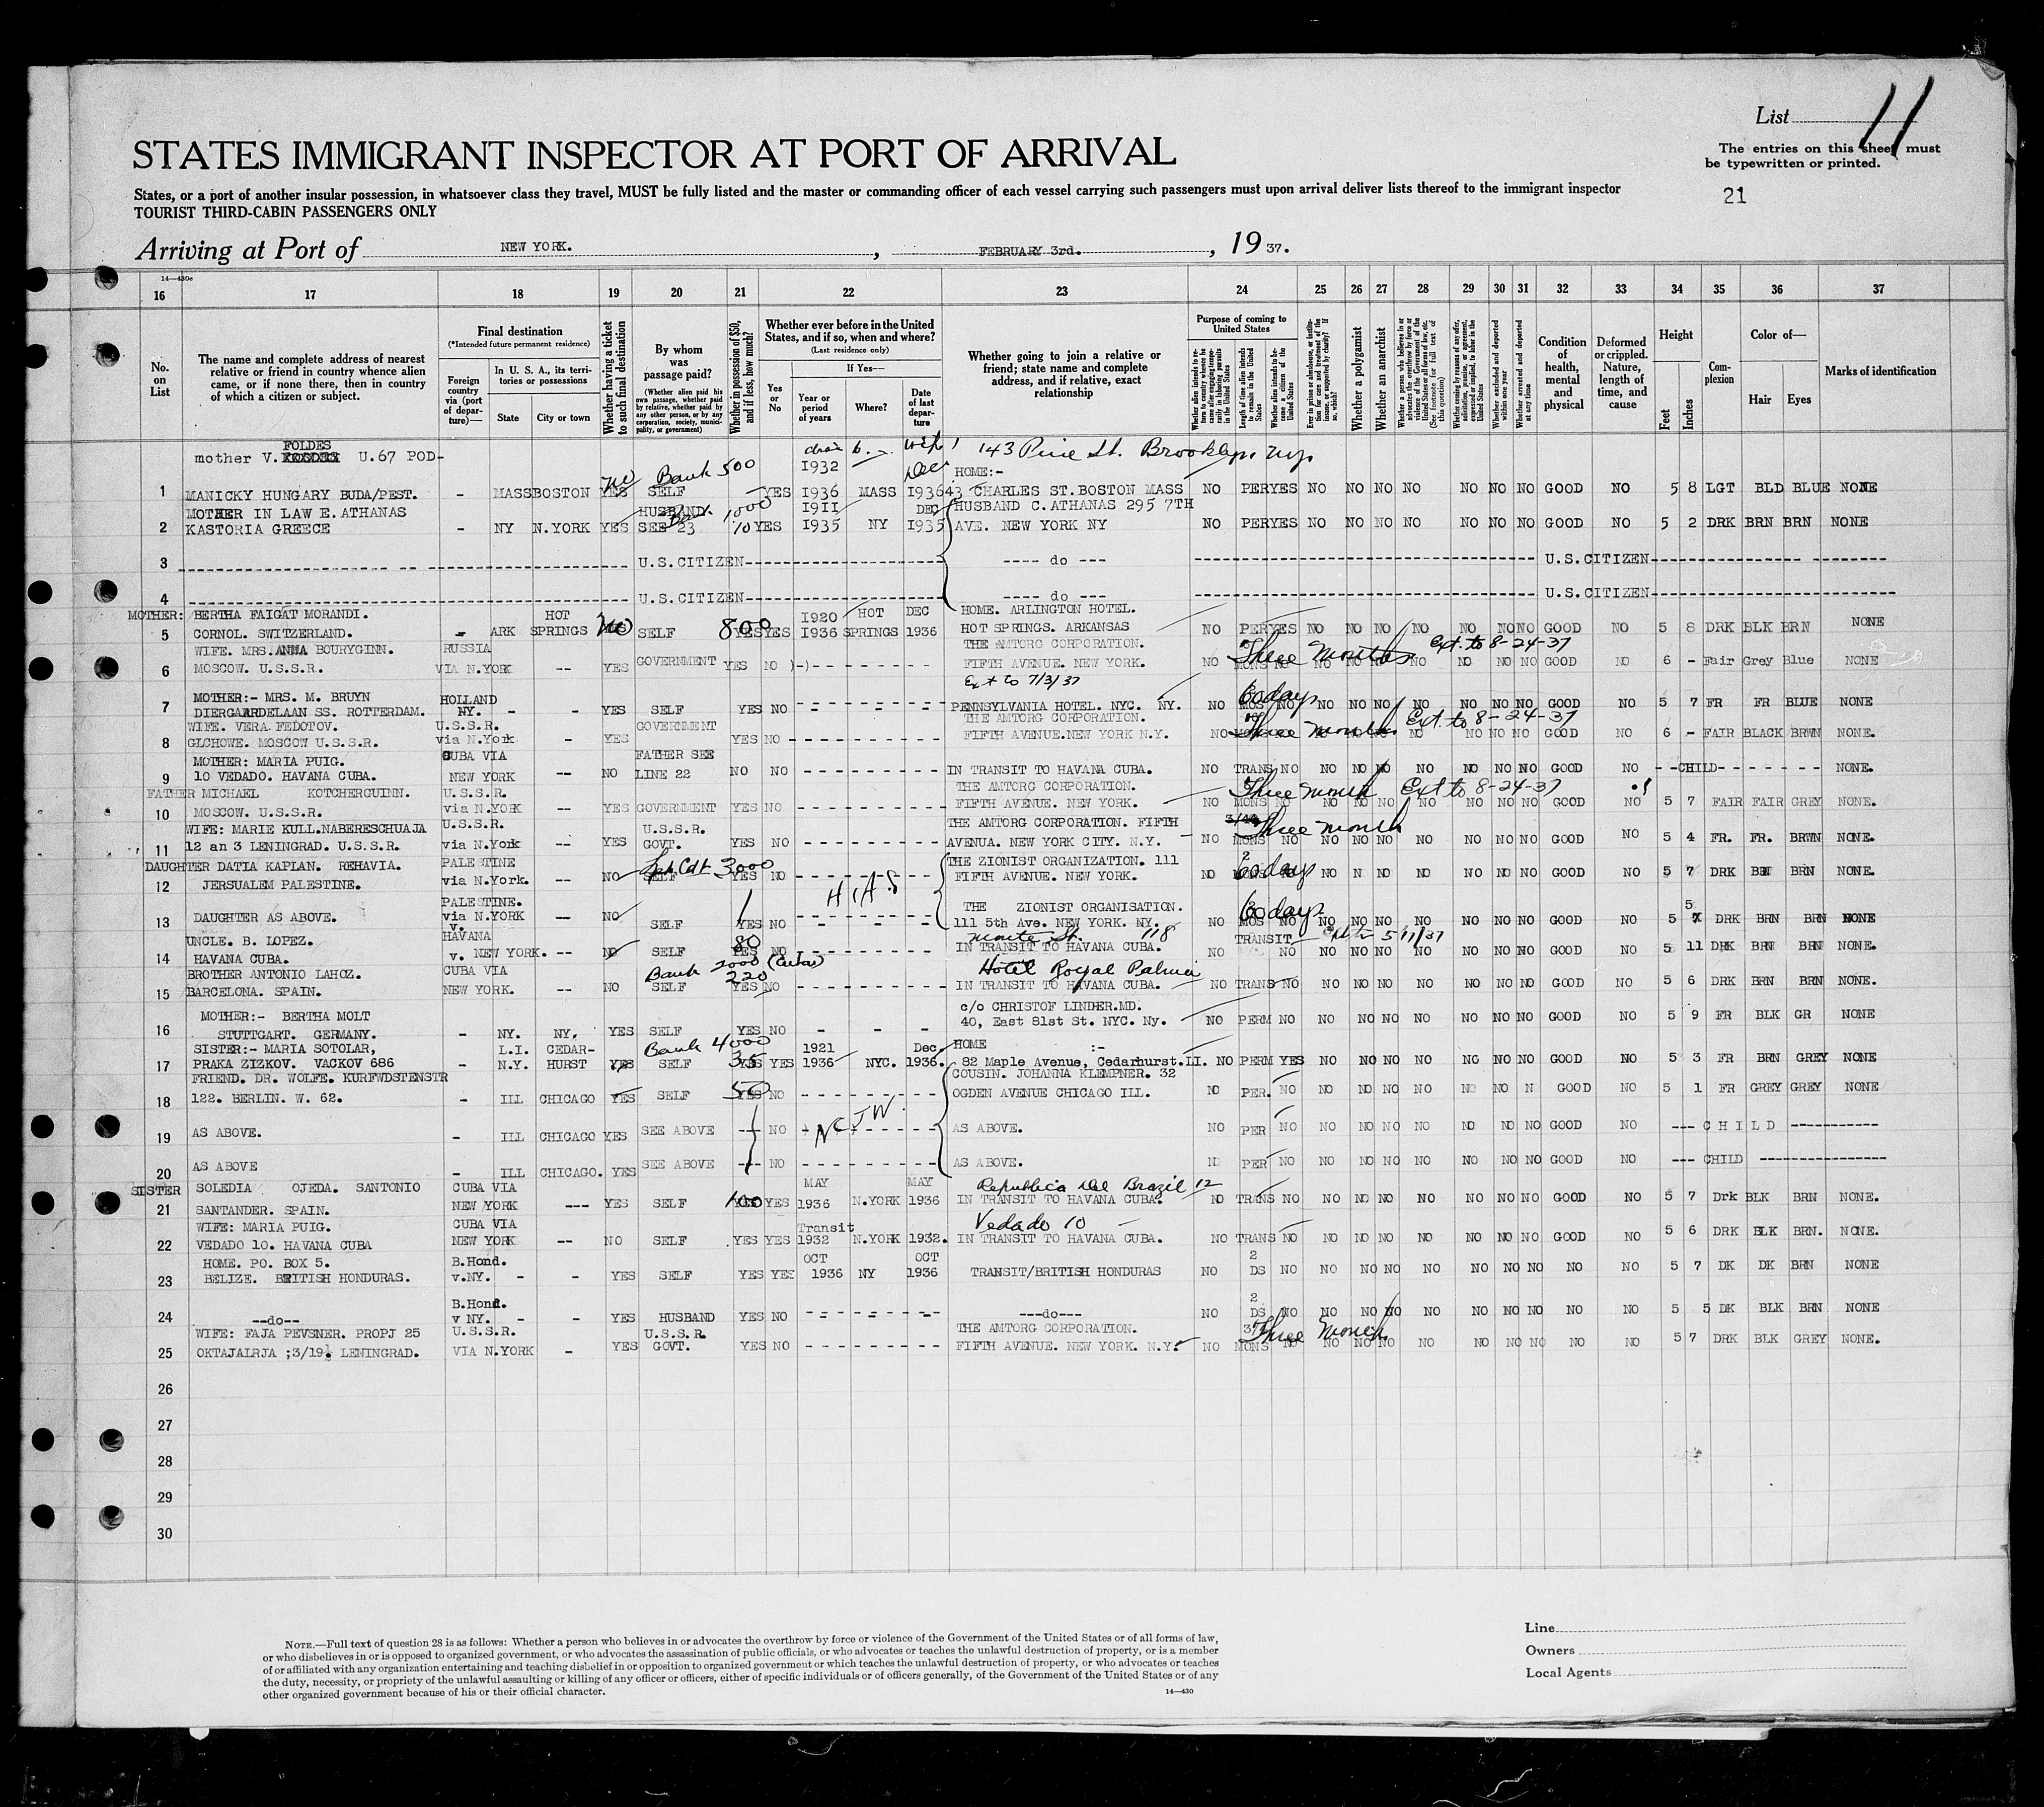 List 11
STATES IMMIGRANT INSPECTOR AT PORT OF ARRIVAL
The entries on this sheet must
be typewritten or printed.
States, or a port of another insular possession, in whatsoever class they travel, MUST be fully listed and the master or commanding officer of each vessel carrying such passengers must upon arrival deliver lists thereof to the immigrant inspector
21
TOURIST THIRD-CABIN PASSENGERS ONLY
Arriving at Port of NEW YORK. , FEBRUARY 3rd. , 19 37.
14—430e
16 17 18 19 20 21 22 23 24 25 26 27 28 29 30 31 32 33 34 35 36 37
No. on List
The name and complete address of nearest relative or friend in country whence alien came, or if none there, then in country of which a citizen or subject.
Final destination
(*Intended future permanent residence)
Foreign country via (port of departure)—
In U. S. A., its territories or possessions
State City or town
Whether having a ticket to such final destination
By whom was passage paid?
(Whether alien paid his own passage, whether paid by relative, whether paid by any other person, or by any corporation, society, municipality, or government)
Whether in possession of $50, and if less, how much?
Whether ever before in the United States, and if so, when and where?
(Last residence only)
Yes or No
If Yes—
Year or period of years Where? Date of last departure
Whether going to join a relative or friend; state name and complete address, and if relative, exact relationship
Purpose of coming to United States
Length of time alien intends to remain in the United States
Whether alien intends to become a citizen of the United States
Whether a polygamist
Whether an anarchist
Whether excluded and deported within one year
Whether arrested and deported at any time
Condition of health, mental and physical
Deformed or crippled. Nature, length of time, and cause
Height
Feet Inches
Complexion
Color of—
Hair Eyes
Marks of identification
FOLDES
mother V. U.67 POD- 1932 Dec 143 Pine St. Brooklyn
no Bank 500 HOME:-
1 MANICKY HUNGARY BUDA/PEST. - MASS BOSTON YES SELF YES 1936 MASS 1936 43 CHARLES ST.BOSTON MASS NO PER YES NO NO NO NO NO NO NO GOOD NO 5 8 LGT BLD BLUE NONE
MOTHER IN LAW E.ATHANAS HUSBAND 1000 1911 DEC HUSBAND C.ATHANAS 295 7TH
2 KASTORIA GREECE - NY N.YORK YES SEE 23 YES 1935 NY 1935 AVE. NEW YORK NY NO PER YES NO NO NO NO NO NO NO GOOD NO 5 2 DRK BRN BRN NONE
3 U.S.CITIZEN ---- do --- U.S.CITIZEN
4 U.S.CITIZEN ---- do --- U.S.CITIZEN
MOTHER: BERTHA FAIGAT MORANDI. HOT 1920 HOT DEC HOME. ARLINGTON HOTEL.
5 CORNOL. SWITZERLAND. - ARK SPRINGS no SELF 800 YES YES 1936 SPRINGS 1936 HOT SPRINGS. ARKANSAS NO PER YES NO NO NO NO NO NO NO GOOD NO 5 8 DRK BLK BRN NONE
WIFE. MRS.ANNA BOURYGINN. RUSSIA THE AMTORG CORPORATION. Three months Ext. to 8-24-37
6 MOSCOW. U.S.S.R. VIA N.YORK -- YES GOVERNMENT YES NO FIFTH AVENUE. NEW YORK. NO MONS NO NO NO NO NO NO NO NO GOOD NO 6 - Fair Grey Blue NONE
Ext to 7/3/37
MOTHER:- MRS. M. BRUYN HOLLAND 60 days
7 DIERGAARDELAAN SS. ROTTERDAM. NY. - - YES SELF YES NO - - - PENNSYLVANIA HOTEL. NYC. NY. NO MOS NO NO NO NO NO NO NO NO GOOD NO 5 7 FR FR BLUE NONE
WIFE. VERA FEDOTOV. U.S.S.R. GOVERNMENT THE AMTORG CORPORATION. Three months Ext. to 8-24-37
8 GLCHOWE. MOSCOW U.S.S.R. via N.York - YES YES NO FIFTH AVENUE.NEW YORK N.Y. NO NO NO NO NO NO NO NO GOOD NO 6 - FAIR BLACK BRWN NONE.
MOTHER: MARIA PUIG. CUBA VIA FATHER SEE
9 10 VEDADO. HAVANA CUBA. NEW YORK -- NO LINE 22 NO NO IN TRANSIT TO HAVANA CUBA. NO TRANS NO NO NO NO NO NO NO NO GOOD NO - -CHILD- - - - - - NONE.
FATHER MICHAEL KOTCHERGUINN. U.S.S.R. THE AMTORG CORPORATION. Three month Ext to 8-24-37
10 MOSCOW. U.S.S.R. via N.YORK -- YES GOVERNMENT YES NO FIFTH AVENUE. NEW YORK. NO MONS NO NO NO NO NO NO NO NO GOOD NO 5 7 FAIR FAIR GREY NONE.
WIFE: MARIE KULL.NABERESCHUAJA U.S.S.R. U.S.S.R. THE AMTORG CORPORATION. FIFTH Three month
11 12 an 3 LENINGRAD. U.S.S.R. via N.York -- YES GOVT. YES NO AVENUA. NEW YORK CITY. N.Y. NO MONS NO NO NO NO NO NO NO NO GOOD NO 5 4 FR. FR. BRWN NONE.
DAUGHTER DATIA KAPLAN. REHAVIA. PALESTINE 3000 THE ZIONIST ORGANIZATION. 111 2
12 JERSUALEM PALESTINE. via N.York. -- NO SELF YES NO FIFTH AVENUE. NEW YORK. NO 60 days NO N NO NO NO NO NO GOOD NO 5 7 DRK BRN BRN NONE.
PALESTINE. HIAS THE ZIONIST ORGANISATION. 60 days 5
13 DAUGHTER AS ABOVE. via N.YORK -- NO SELF YES NO 111 5th Ave. NEW YORK. NY. NO MOS NO NO NO NO NO NO NO NO GOOD NO 5 DRK BRN BRN NONE
UNCLE. B. LOPEZ. v. HAVANA 80 Monte St. 118 TRANSIT 5/11/37
14 HAVANA CUBA. v. NEW YORK. -- NO SELF YES NO IN TRANSIT TO HAVANA CUBA. NO NO NO NO NO NO NO NO NO GOOD NO 5 11 DRK BRN BRN NONE.
BROTHER ANTONIO LAHOZ. CUBA VIA Bank 2000 (Cuban) 220 Hotel Royal Palma
15 BARCELONA. SPAIN. NEW YORK. -- NO SELF YES NO IN TRANSIT TO HAVANA CUBA. NO TRANS NO NO NO NO NO NO NO NO GOOD NO 5 6 DRK BRN BRN NONE.
MOTHER:- BERTHA MOLT c/o CHRISTOF LINDER.MD.
16 STUTTGART. GERMANY. - NY. NY, YES SELF YES NO - - - 40, East 81st St. NYC. Ny. NO PERM NO NO NO NO NO NO NO NO GOOD NO 5 9 FR BLK GR NONE
SISTER:- MARIA SOTOLAR, L.I. CEDAR- Bank 4000 1921 Dec HOME :-
17 PRAKA ZIZKOV. VACKOV 686 - N.Y. HURST YES SELF 35 YES 1936 NYC. 1936. 82 Maple Avenue, Cedarhurst.LI. NO PERM YES NO NO NO NO NO NO NO GOOD NO 5 3 FR BRN GREY NONE
FRIEND. DR. WOLFE. KURFWDSTENSTR COUSIN. JOHANNA KLEMPNER. 32
18 122. BERLIN. W. 62. - ILL CHICAGO YES SELF 50 YES NO OGDEN AVENUE CHICAGO ILL. NO PER. NO NO NO NO NO NO NO N GOOD NO 5 1 FR GREY GREY NONE
NCJW.
19 AS ABOVE. - ILL CHICAGO YES SEE ABOVE -- NO AS ABOVE. NO PER NO NO NO NO NO NO NO NO GOOD NO --- CHILD -----------
20 AS ABOVE - ILL CHICAGO. YES SEE ABOVE --- NO AS ABOVE. NO PER NO NO NO NO NO NO NO NO GOOD NO --- CHILD -----------
SISTER SOLEDIA OJEDA. SANTONIO CUBA VIA MAY MAY Republica del Brazil 12
21 SANTANDER. SPAIN. NEW YORK --- YES SELF 100 YES 1936 N.YORK 1936 IN TRANSIT TO HAVANA CUBA. NO TRANS NO NO NO NO NO NO NO NO GOOD NO 5 7 Drk BLK BRN NONE.
WIFE: MARIA PUIG. CUBA VIA Transit Vedado 10
22 VEDADO 10. HAVANA CUBA NEW YORK -- NO SELF YES YES 1932 N.YORK 1932. IN TRANSIT TO HAVANA CUBA. NO TRANS NO NO NO NO NO NO NO NO GOOD NO 5 6 DRK BLK BRN. NONE.
HOME. PO. BOX 5. B.Hond. OCT OCT 2
23 BELIZE. BRITISH HONDURAS. v.NY. - - YES SELF YES YES 1936 NY 1936 TRANSIT/BRITISH HONDURAS NO DS NO NO NO NO NO NO NO NO NO NO 5 7 DK DK BRN NONE
B.Hond. 2
24 --do-- v NY. - - YES HUSBAND YES NO ---do--- NO DS NO NO NO NO NO NO NO NO NO NO 5 5 DK BLK BRN NONE
WIFE: FAJA PEVSNER. PROPJ 25 U.S.S.R. U.S.S.R. THE AMTORG CORPORATION. Three month
25 OKTAJALRJA ;3/19. LENINGRAD. VIA N.YORK - YES GOVT. YES NO FIFTH AVENUE. NEW YORK. N.Y. NO MONS NO NO NO NO NO NO NO NO NO NO 5 7 DRK BLK GREY NONE.
26
27
28
29
30
NOTE.—Full text of question 28 is as follows: Whether a person who believes in or advocates the overthrow by force or violence of the Government of the United States or of all forms of law,
or who disbelieves in or is opposed to organized government, or who advocates the assassination of public officials, or who advocates or teaches the unlawful destruction of property, or is a member
of or affiliated with any organization entertaining and teaching disbelief in or opposition to organized government or which teaches the unlawful destruction of property, or who advocates or teaches
the duty, necessity, or propriety of the unlawful assaulting or killing of any officer or officers, either of specific individuals or of officers generally, of the Government of the United States or of any
other organized government because of his or their official character.
14—430
Line
Owners
Local Agents